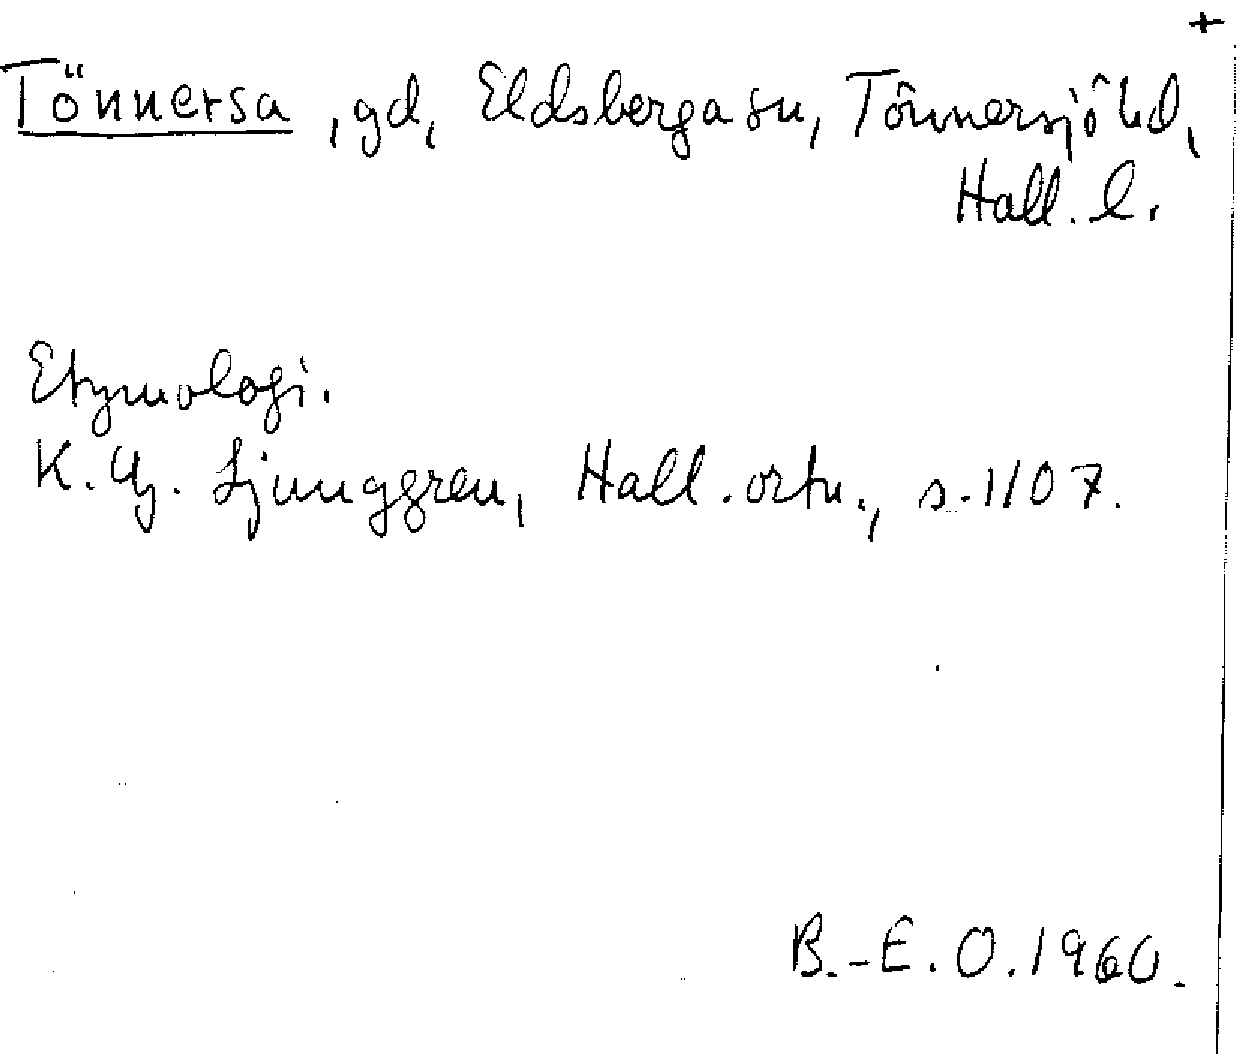 +
Tönnersa, gd, Eldsberga sn, Tönnersjö hd,
Hall. l.
Etymologi.
K. G. Ljunggren, Hall. ortn., s. 1107.
B.-E. O. 1960.